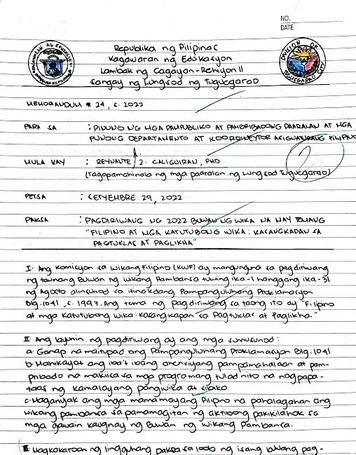 NO.
DATE
Republika ng Pilipinas
Kagawaran ng Edukasyon
Lambak ng Cagayan - Rehiyon II
Sangay ng Lungsod ng Tuguegarao
MEMORANDUM # 24, s. 2022
PARA SA : PINUNO NG MGA PAMPUBLIKO AT PAMPRIBADONG PAARALAN AT MGA
PUNONG DEPARTAMENTO AT KOORDINEYTOR ASIGNATURANG FILIPINO
MULA KAY : REYNANTE Z. CALIGUIRAN, PHD
(Tagapamahala ng mga paaralan ng Lungsod Tuguegarao)
PETSA : SETYEMBRE 29, 2022
PAKSA : PAGDIRIWANG NG 2022 BUWAN NG WIKA NA MAY TEMANG
"FILIPINO AT MGA KATUTUBONG WIKA: KASANGKAPAN SA
PAGTUKLAS AT PAGLIKHA."
I. Ang Komisyon sa Wikang Filipino (KWF) ay mangunguna sa pagdiriwang
ng taunang Buwan ng Wikang Pambansa tuwing ika-1 hanggang ika-31
ng Agosto alinsunod sa itinakdang Pampanguluhang Proklamasyon
Blg. 1041, s. 1997. Ang tema ng pagdiriwang sa taong ito ay "Filipino
at mga katutubong wika: kasangkapan sa Pagtuklas at Paglikha."
II. Ang layunin ng pagdiriwang ay ang mga sumusunod:
a. Ganap na maitupad ang Pampanguluhang Proklamasyon Blg. 1041
b. Mahikayat ang iba't ibang ahensiyang pampamahalaan at pam-
pribado na makiisa sa mga programang tulad nito na nagpapa-
taas ng kamalayang pangwika at
c. Maganyak ang mga mamamayang Pilipino na pahalagahan ang
wikang pambansa sa pamamagitan ng aktibong pakikilahok sa
mga gawain kaugnay ng Buwan ng Wikang Pambansa.
III. Magkakaroon ng